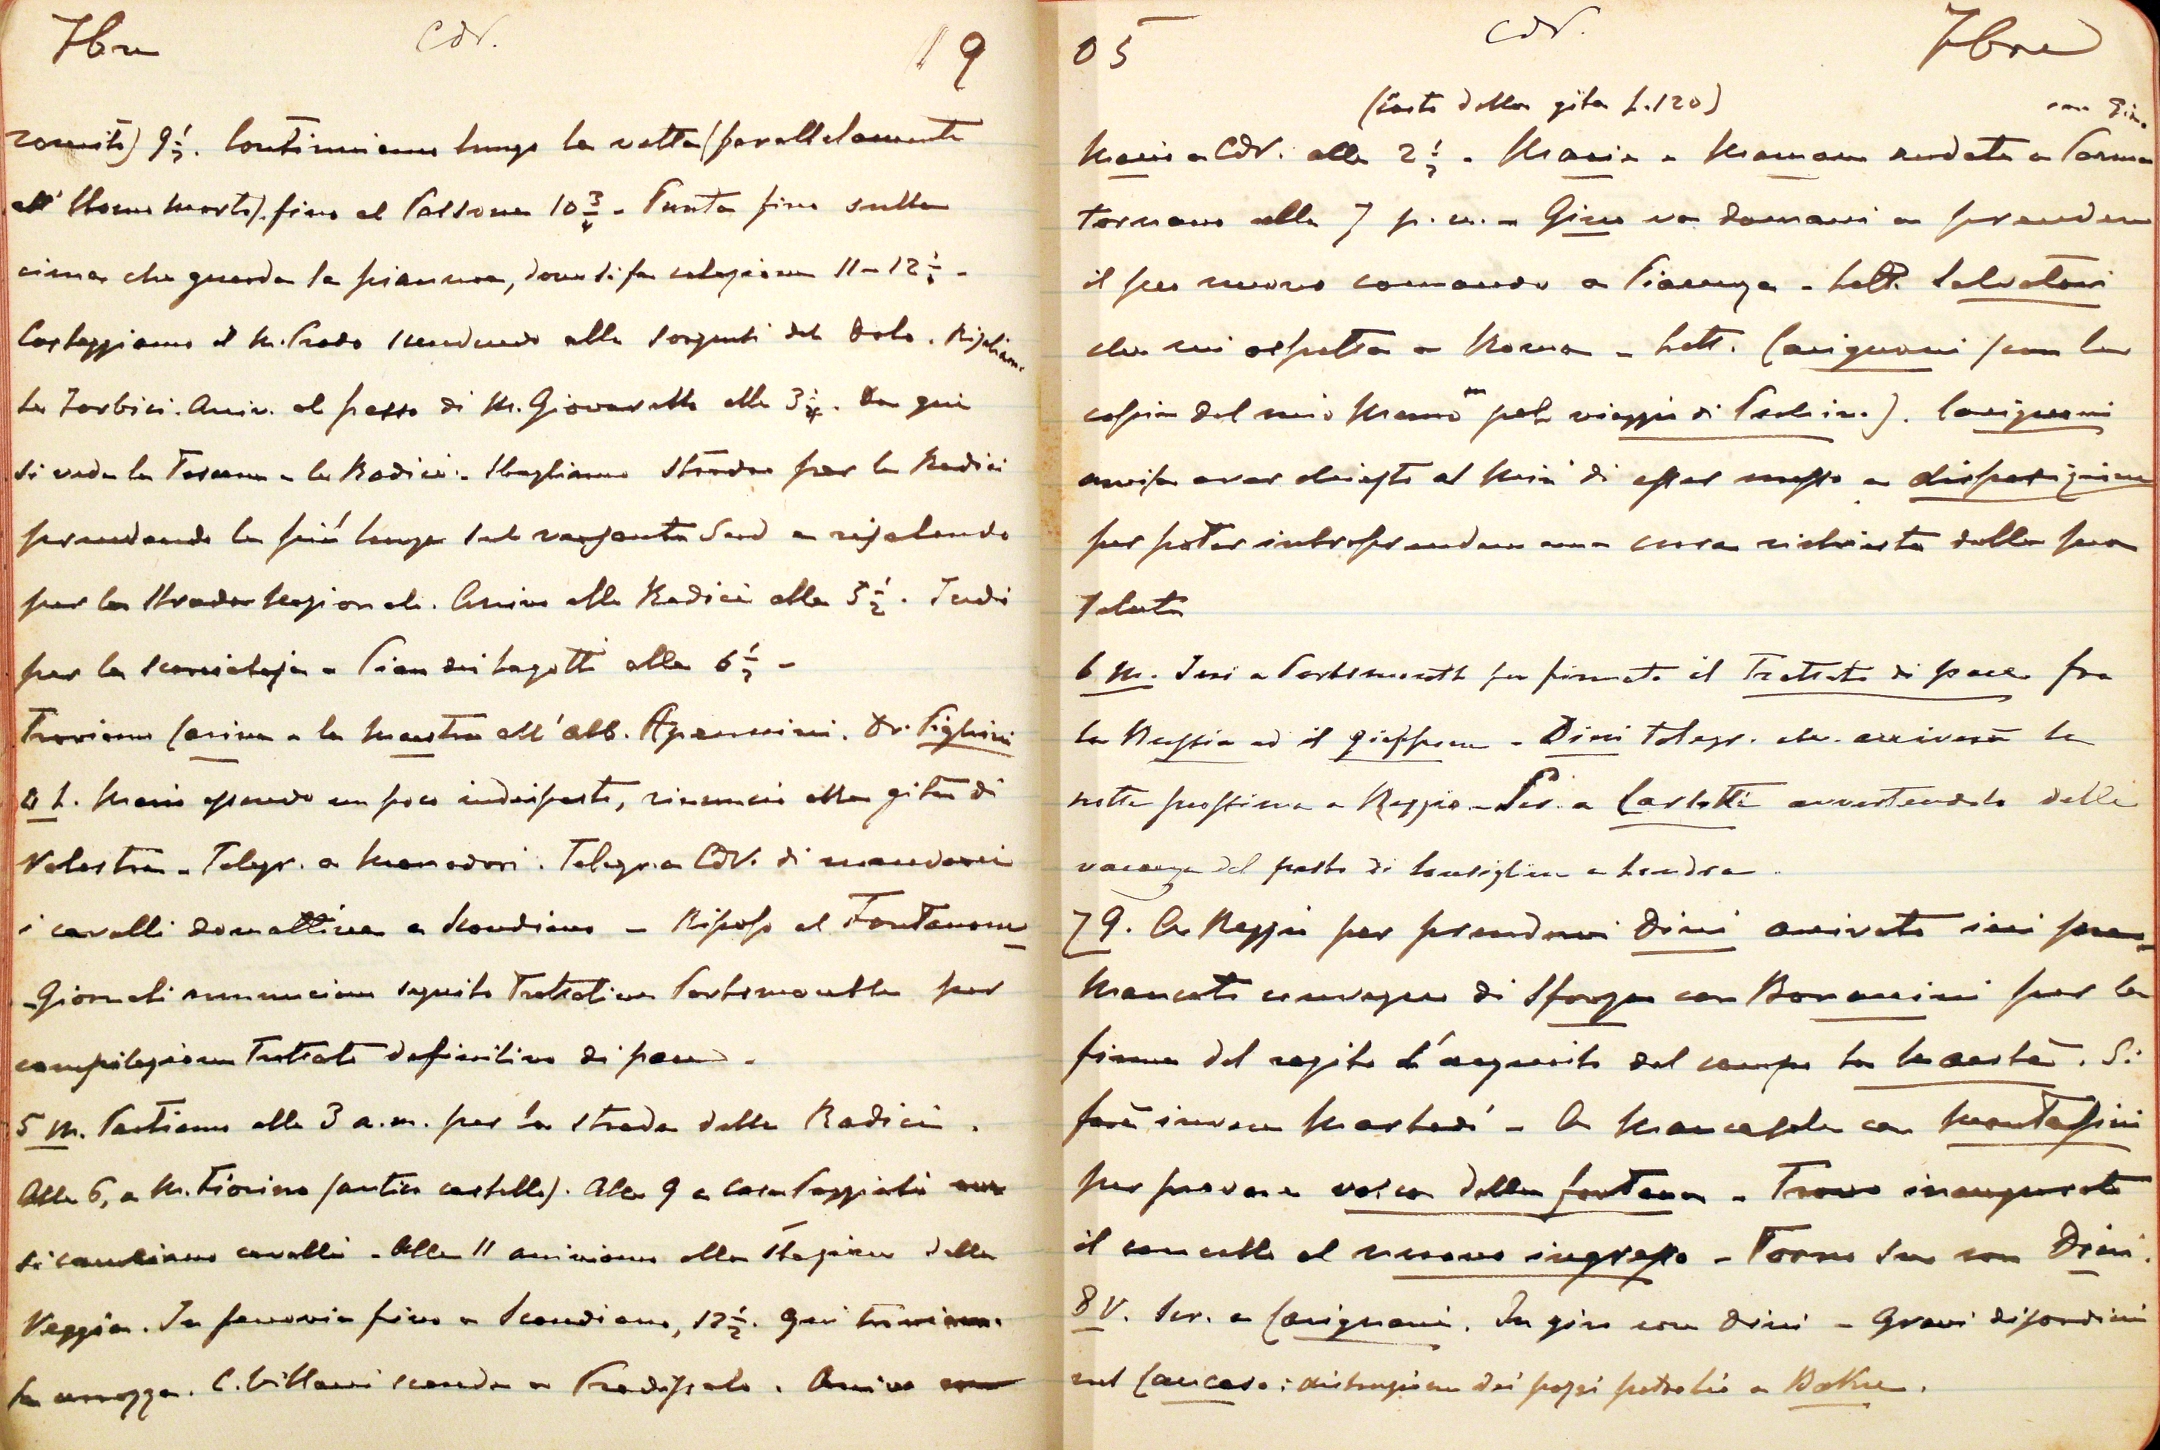 7bre CdV. 19
romito) 9½. Continuiamo lungo la vetta (parallelamente
all'Uomo morto) fino al Passone 10¾ - Punta fino sulla
cima che guarda la pianura, dove si fa colazione 11-12½ -
Costeggiamo il M. Prado scendendo alle sorgenti del Dolo. Risaliamo
le Forbici. Arriv. al passo di M. Giovarello alle 3¼. Da qui
si vede la Toscana e le Radici. Sbagliamo strada per le Radici
prendendo la più lunga sul versante Sud e risalendo
per la strada Nazionale. Arrivo alle Radici alle 5½. Indi
per la scorciatoja a Pian dei Lagotti alle 6½ -
Troviamo Carina e la Maestra all'Alb. Apennini. Dr. Pighini
4 L. Mario essendo un poco indisposto, rinuncio alla gita di
Velestra - Telegr. a Manodori. Telegr. a CdV. di mandarci
i cavalli domattina a Scandiano - Riposo al Fontanone
- Giornali annunciano seguito Trattative Portsmouth per
compilazione Trattato definitivo di pace -
5 M. Partiamo alle 3 a.m. per la strada delle Radici.
Alle 6, a M. Fiorino (antico castello). Alle 9 a Casa Poggioli
si cambiano cavalli - Alle 11 arriviamo alla stazione della
Veggia. In ferrovia fino a Scandiano, 12½. Qui troviamo
la carrozza. C. Villani scende a Pradissolo. Arrivo
05 CdV. 7bre
(Costo della gita L. 120)
con Gino
Mario a CdV. alle 2½ - Maria e Mamam andate a Parma
tornano alle 7 p.m. - Gino va domani a prendere
il suo nuovo comando a Piacenza - Lett. Salvatori
che mi aspetta a Roma - Lett. Carignani (con la
copia del mio Memom pel viaggio di Pechino). Carignani
avvisa aver chiesto al Min. di esser messo a disposizione
per poter intraprendere una cura richiesta dalla sua
salute
6 M. Ieri a Portsmouth fu firmato il Trattato di pace fra
la Russia ed il Giappone - Dini telegr. che arriverà la
notte prossima a Reggio - Scr. a Carlotti avvertendolo della
vacanza del posto di Consigliere a Londra.
7 G. A Reggio per prendervi Dini arrivato ieri sera -
Mancato convegno di Sforza con Bonaccini per la
firma del rogito d'acquisto del campo La Maestà. Si
farà invece Martedì - A Mancasale con Montessori
per provare vasca della fontana - Trovo inaugurato
il cancello al nuovo ingresso - Torno su con Dini.
8 V. Scr. a Carignani. In giro con Dini - Gravi disordini
nel Caucaso: distruzione dei pozzi petrolio a Baku.